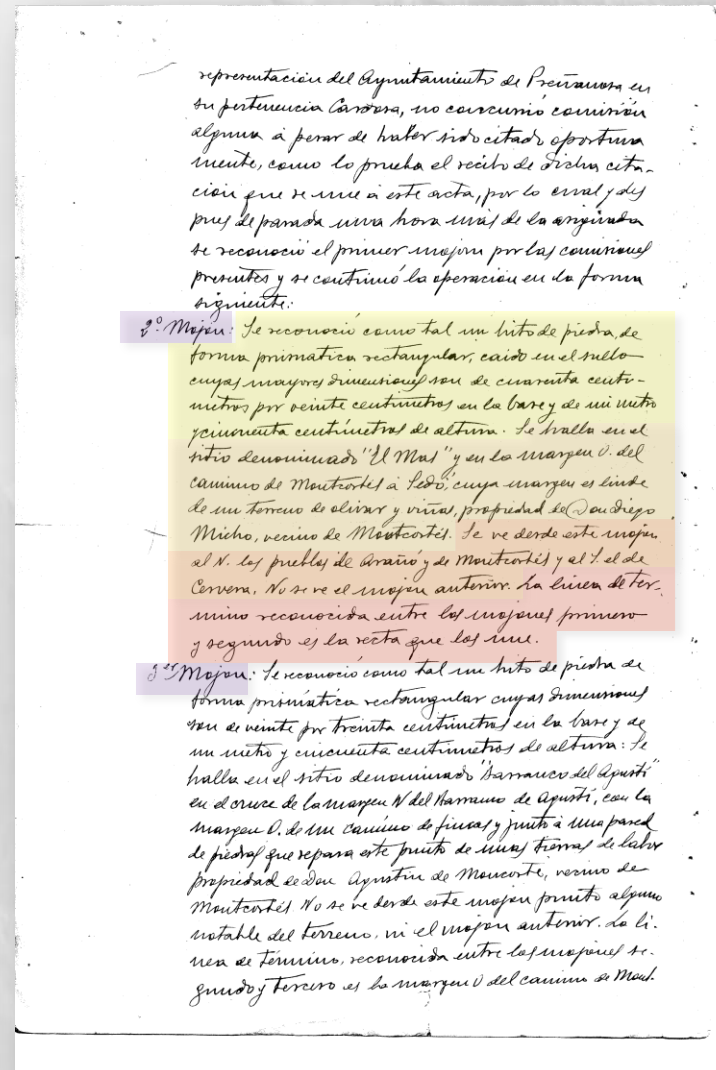 representación del Ayuntamiento de Preñanosa en
su pertenencia Cardosa, no concurrió comisión
alguna á pesar de haber sido citado oportuna
mente, como lo prueba el recibo de dicha cita-
ción que se une á este acta, por lo cual y des
pues de pasada una hora más de la asignada
se reconoció el primer mojon por las comisiones
presentes y se continuó la operación en la forma
siguiente:
2º Mojon: Se reconoció como tal un hito de piedra, de
forma prismatica rectangular, caido en el suelo
cuyas mayores dimensiones son de cuarenta centi-
metros por veinte centimetros en la base y de un metro
y cincuenta centímetros de altura. Se halla en el
sitio denominado "El Mas" y en la margen O. del
camino de Montcortés á Sedó, cuya margen es linde
de un terreno de olivar y viñas, propiedad de Don Diego
Micho, vecino de Montcortés. Se ve desde este mojon
al N. los pueblos de Arañó y de Montcortés y al S. el de
Cervera. No se ve el mojon anterior. La linea de tér-
mino reconocida entre los mojones primero
y segundo es la recta que los une.
3er Mojon: Se reconoció como tal un hito de piedra de
forma prismática rectangular cuyas dimensiones
son de veinte por treinta centimetros en la base y de
un metro y cincuenta centimetros de altura: Se
halla en el sitio denominado "Barranco del Agustí"
en el cruce de la margen N del Barranco de Agustí, con la
margen O. de un camino de fincas y junto á una pared
de piedras que separa este punto de unas tierras de labor
propiedad de Don Agustin de Moncorte, vecino de
Montcortés No se ve desde este mojon punto alguno
notable del terreno, ni el mojon anterior. La li-
nea de término, reconocida entre los mojones se-
gundo y tercero es la margen O del camino de Mont-